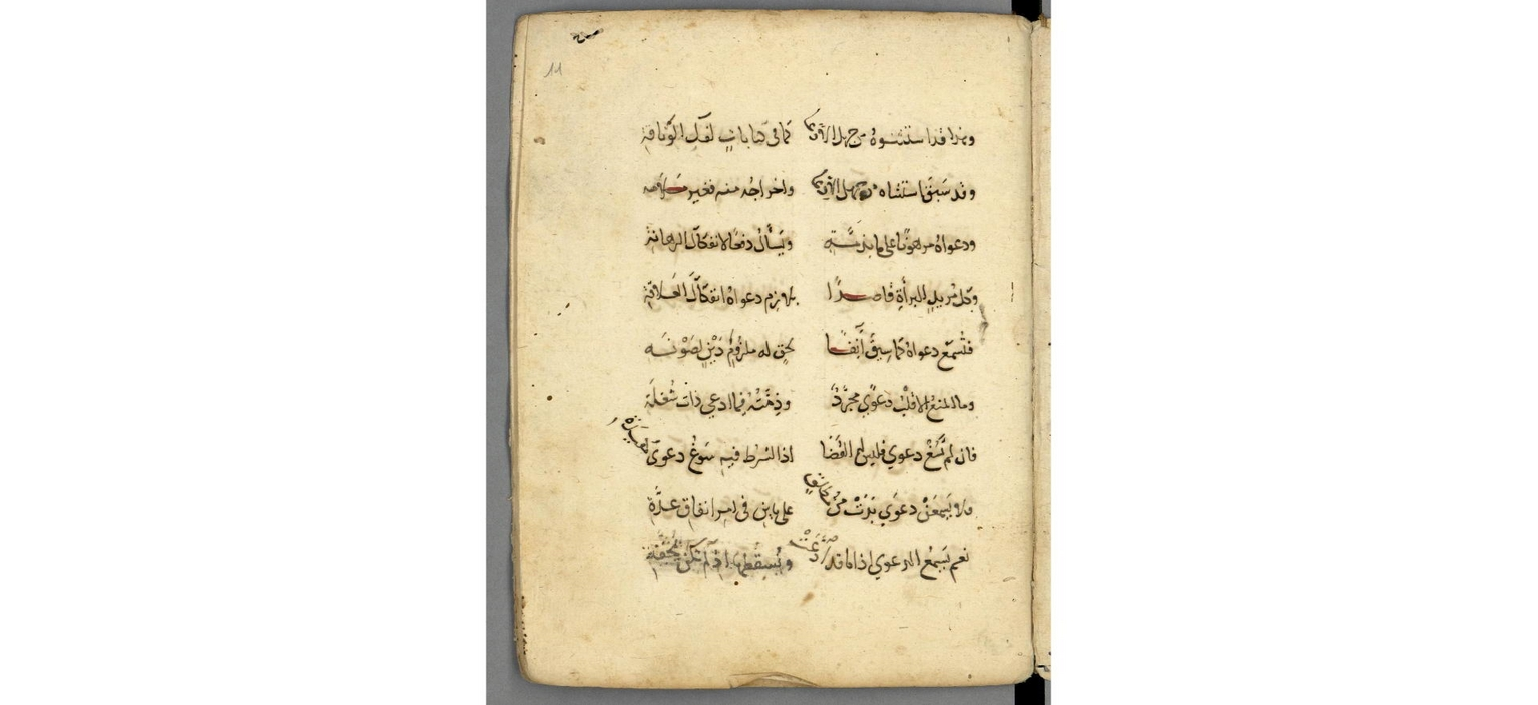 11
وهذا قد استثنوه من جهل كما في كتابات لفك الوثاقة
وقد سبق استثناه من جهل واخراجه منه فغير
ودعواه مرهونا على ما بذمته ويسأل دفعا لانفكاك الرهانة
وكل مريد للبرأة قاصدا يلازم دعواه انفكاك العلاقة
فتسمع دعواه كما سيق آنفا بحق له ملزوم دين لصونه
وما المنع الا قلب دعوى مجرد وذمته فيما ادعى ذات شغلة
فان لم تسغ دعوى فليس لها القضا اذا الشرط فيه سوغ دعوى
فلا يسمعن دعوى بدت من على باين في امر انفاق عدة
نعم يسمع الدعوى اذا ما قد ادعت ويسقطها اذ لم تكن